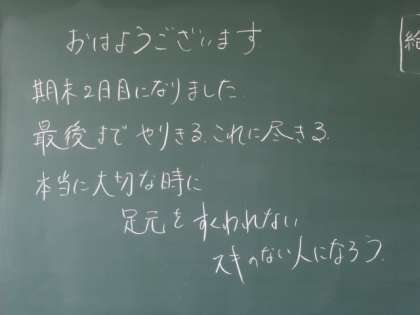 おはようございます
期末2日目になりました.
最後まで やりきる.これに尽きる.
本当に大切な時に
足元を すくわれない
スキのない人になろう.
給